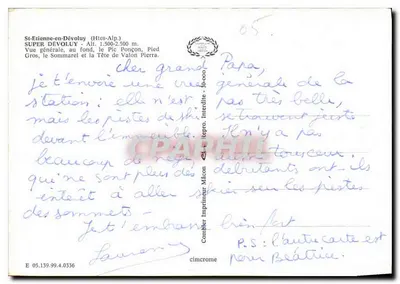 05.
St-Etienne-en-Dévoluy (Htes-Alp.)
SUPER DEVOLUY - Alt. 1.500-2.500 m.
Vue générale, au fond, le Pic Ponçon, Pied
Gros, le Sommarel et la Tête de Valon Pierra.
cher grand Papa,
je t'envoie une vue générale de la
station : elle n'est pas très belle,
mais les pistes de ski se trouvent juste
devant l'immeuble. Il n'y a pas
beaucoup de
qui ne sont plus des débutants ont-ils
intérêt à aller skier sur les pistes
des sommets -
Je t'embrasse bien fort
Laurence
P.S : l'autre carte est
pour Béatrice.
Combier Imprimeur Mâcon
cimcrome
E 05.139.99.4.0336
CPARPHIL.COM